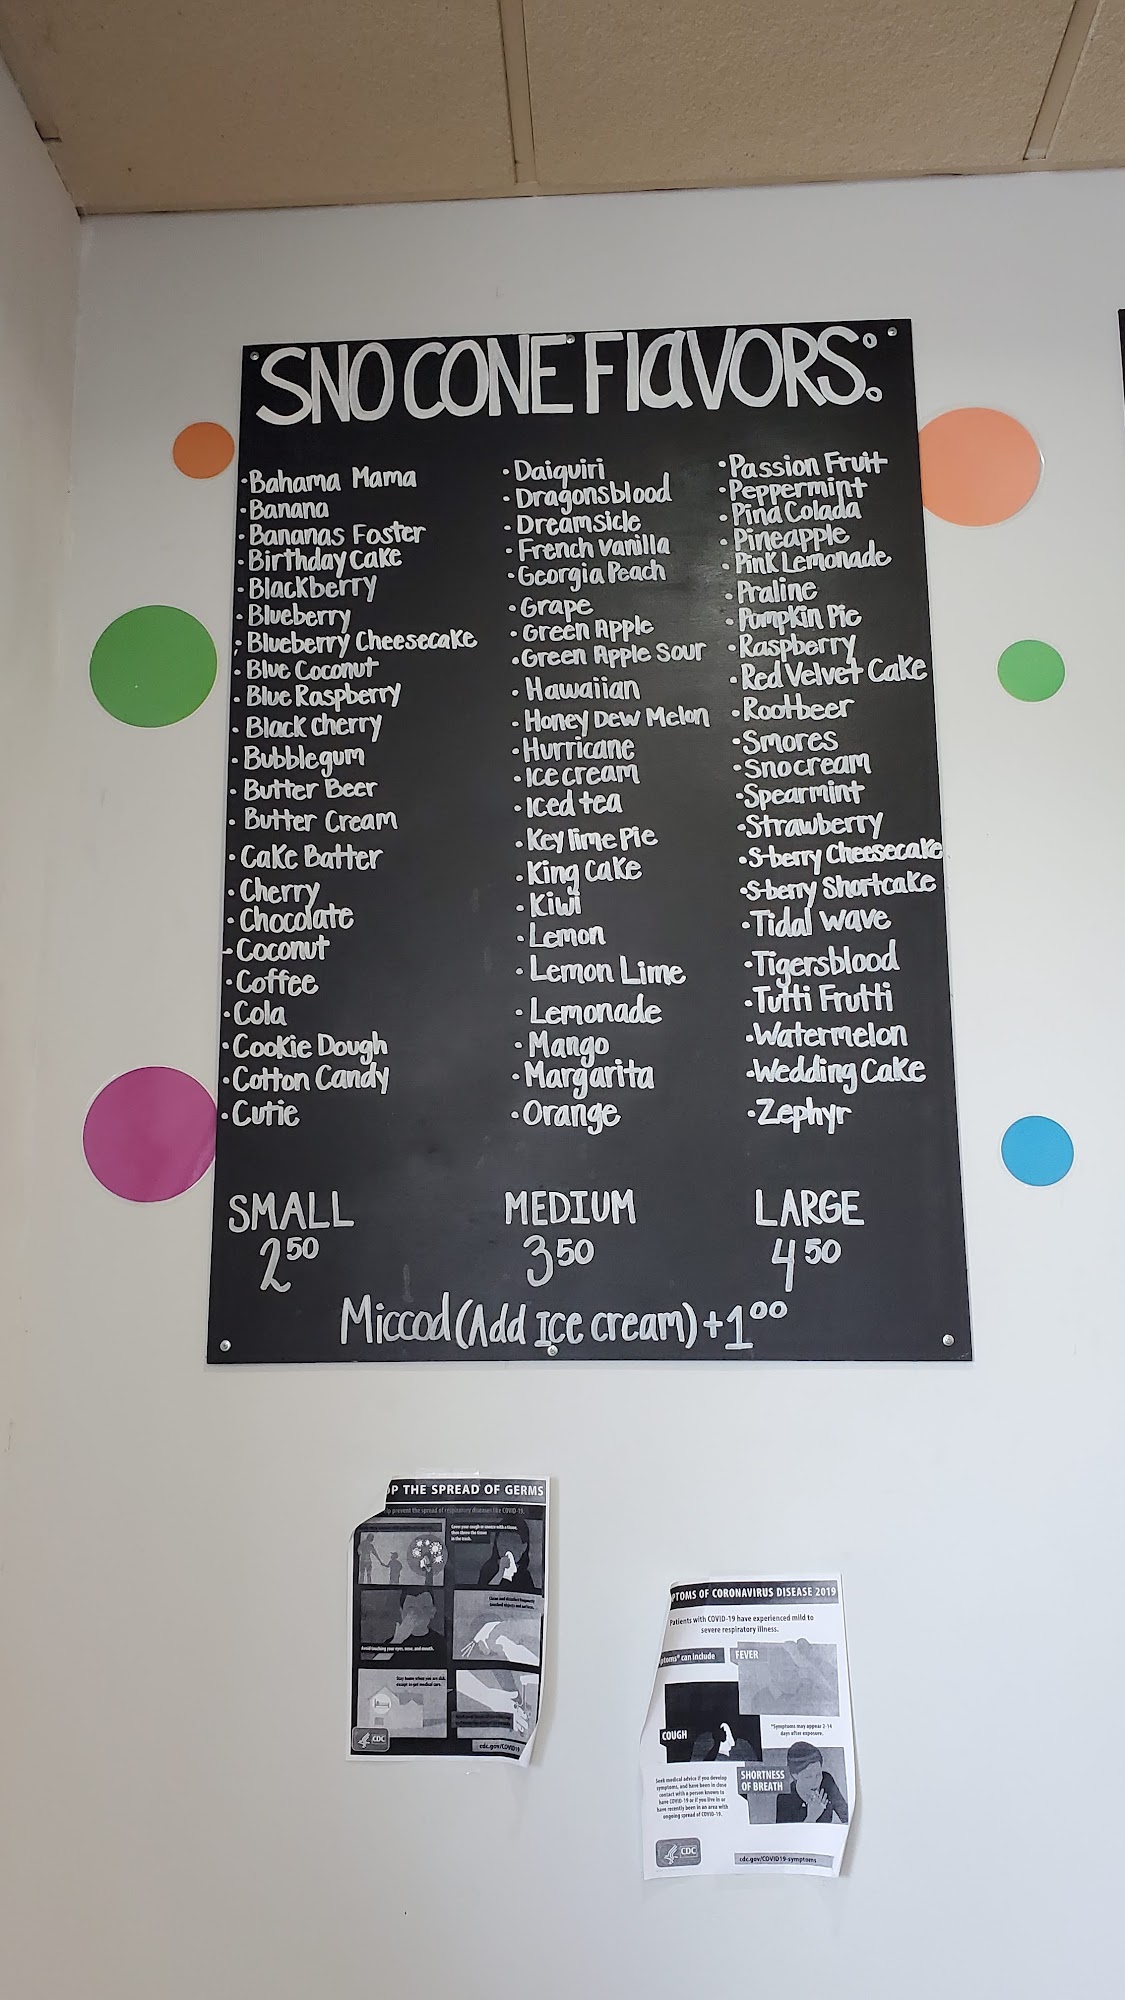 SNO CONE FlaVORS:
• Bahama Mama
• Banana
• Bananas Foster
• Birthday Cake
• Blackberry
• Blueberry
• Blueberry Cheesecake
• Blue Coconut
• Blue Raspberry
• Black cherry
• Bubblegum
• Butter Beer
• Butter Cream
• Cake Batter
• Cherry
• Chocolate
• Coconut
• Coffee
• Cola
• Cookie Dough
• Cotton Candy
• Cutie
• Daiquiri
• Dragonsblood
• Dreamsicle
• French Vanilla
• Georgia Peach
• Grape
• Green Apple
• Green Apple Sour
• Hawaiian
• Honey Dew Melon
• Hurricane
• Ice cream
• Iced tea
• Key lime Pie
• King Cake
• Kiwi
• Lemon
• Lemon Lime
• Lemonade
• Mango
• Margarita
• Orange
• Passion Fruit
• Peppermint
• Pina Colada
• Pineapple
• Pink Lemonade
• Praline
• Pumpkin Pie
• Raspberry
• Red Velvet Cake
• Rootbeer
• Smores
• Snocream
• Spearmint
• Strawberry
• S-berry Cheesecake
• S-berry Shortcake
• Tidal Wave
• Tigersblood
• Tutti Frutti
• Watermelon
• Wedding Cake
• Zephyr
SMALL
2 50
MEDIUM
3 50
LARGE
4 50
Miccod (Add Ice cream) + 1 00
OP THE SPREAD OF GERMS
prevent the spread of respiratory diseases like COVID-19.
Cover your cough or sneeze with a tissue,
then throw the tissue
in the trash.
Clean and disinfect frequently
touched objects and surfaces.
Avoid touching your eyes, nose, and mouth.
Stay home when you are sick,
except to get medical care.
CDC
cdc.gov/COVID19
PTOMS OF CORONAVIRUS DISEASE 2019
Patients with COVID-19 have experienced mild to
severe respiratory illness.
ptoms* can include
FEVER
COUGH
*Symptoms may appear 2-14
days after exposure.
SHORTNESS
OF BREATH
Seek medical advice if you develop
symptoms, and have been in close
contact with a person known to
have COVID-19 or if you live in or
have recently been in an area with
ongoing spread of COVID-19.
CDC
cdc.gov/COVID19-symptoms